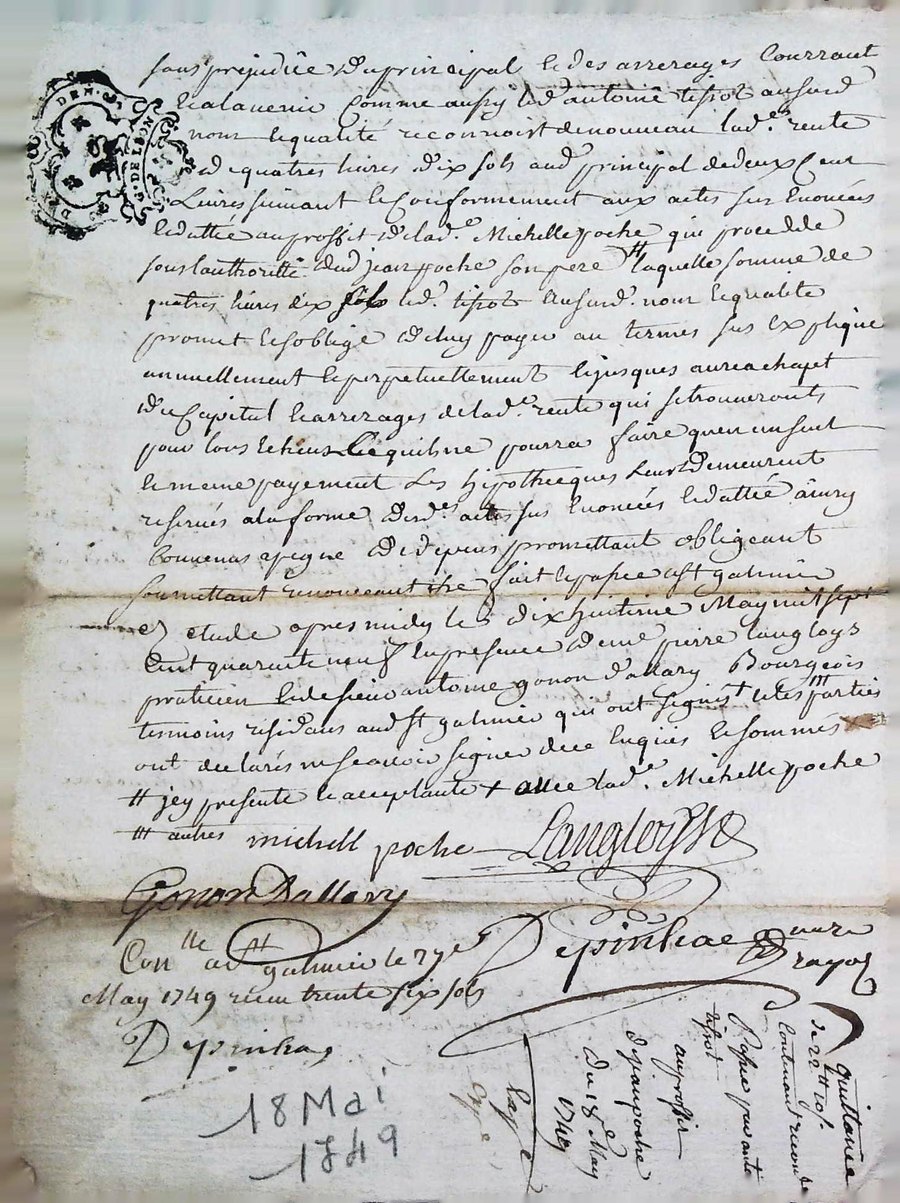 sans prejudice du principal et des arrerages Courrant
et alavenir Comme aussy led. antoine tissot ausurd.
nom et qualité reconnoist denouveau lad.e rente
de quatres livres dix sols aud. principal dedeux Cent
Livres suivant et Conformement aux actes sus Enoncées
et dattée au proffit de lad.e Michelle poche qui procedde
sous lauthoritté dud jean poche son pere # laquelle somme de
quatres livres dix sols led. tissot Ausurd. nom et qualité
promet et soblige de luy payer au termes sus expliqué
annuellement et perpetuellement et jusques au reachapt
du Capital et arrerages de lad.e rente qui se trouveronts
pour lors
pourra faire quen un seul
et meme payement Les hipotheques Leurs demeurent
reservés a la forme desd.s actes sus Enoncées et dattée
promettant obligeant
soumettant renonceant fait et passé a st galmier
étude apres midy le dixhuitieme May mil sept
Cent quarante neuf En presence de me pierre Langloys
praticien et de sieur antoine gonon d'allary Bourgeois
temoins residants aud st galmier qui ont signés + et les ### parties
ont declarés ne scavoir signer de ce Enquis et sommés
# jcy presente et acceptante + avec lad.e Michelle poche
### autres michell poche Langloys
Gonon Dallary
Depinhac
Con.lle a st galmier le 27e
May 1749 recu trente six sols
Depinhac
quittance
de 22# 10s.
Contenant renon.
Passée par ant.
tissot
au proffit
de jean poche
du 18e May
1749
18 Mai
1749